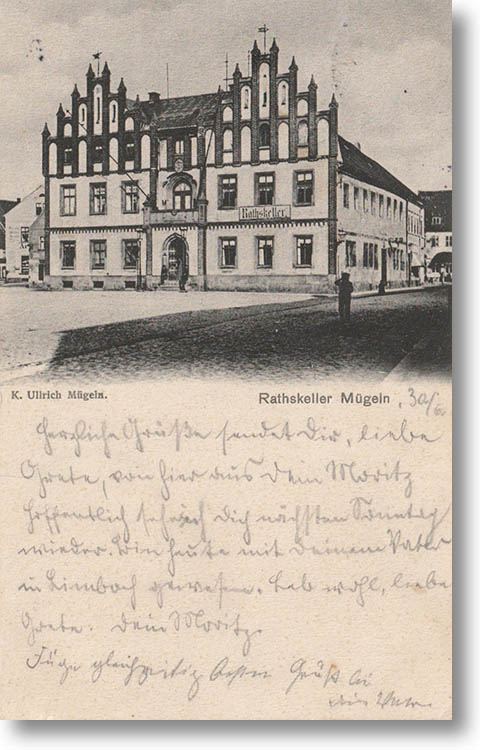 Rathskeller
K. Ullrich Mügeln.
Rathskeller Mügeln, 30/6
Herzliche Grüße sendet Dir, liebe
Grete, von hier aus Dein Moritz
Hoffentlich seh ich dich nächsten Sonntag
wieder. Bin heute mit Deinem Vater
in Limbach gewesen. Leb wohl, liebe
Grete. Dein Moritz.
Füge gleichzeitig besten Gruß bei
dein Vater